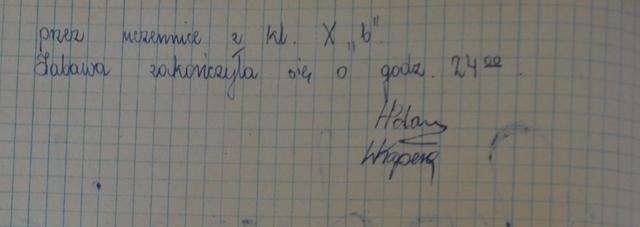 przez uczennice z kl. X „b".
Zabawa zakończyła się o godz. 24⁰⁰.